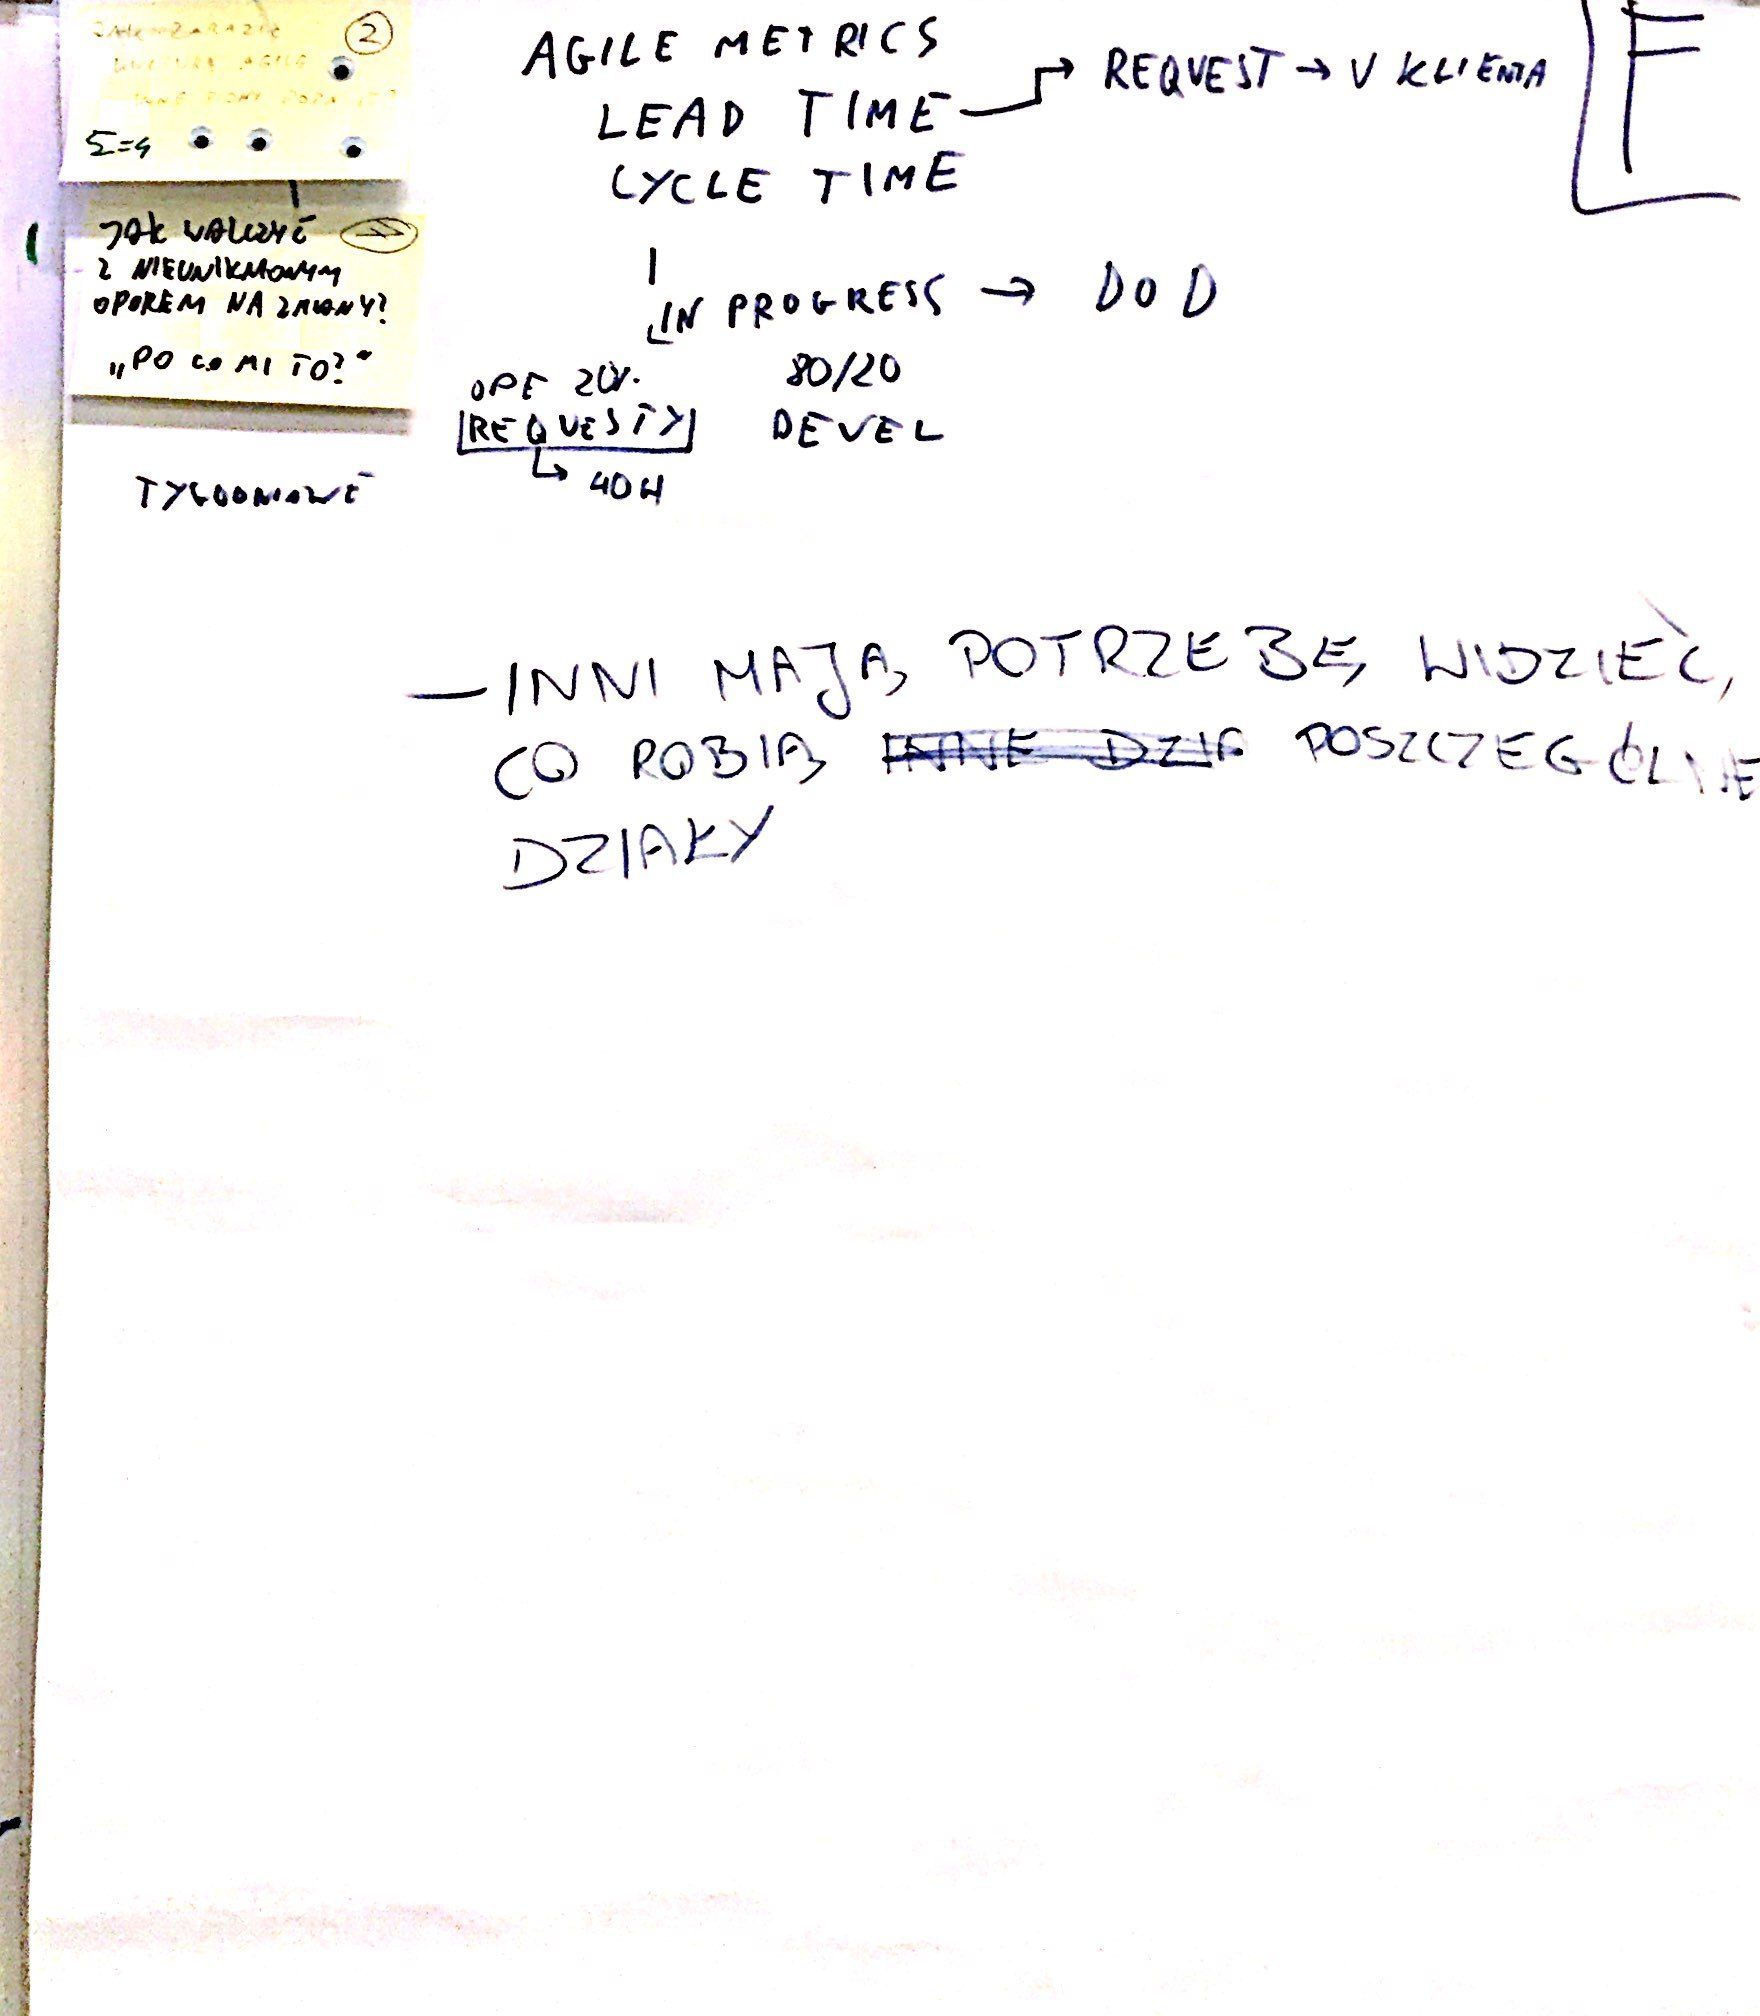 2
JAK ZARAZIĆ
KULTURĄ AGILE
INNE
Σ=4
JAK WALCZYĆ
Z NIEUNIKNIONYM
OPOREM NA ZMIANY?
„PO CO MI TO?"
TYGODNIOWE
AGILE METRICS
LEAD TIME → REQUEST → U KLIENTA
CYCLE TIME
IN PROGRESS → DOD
OPE 20% 80/20
REQUESTY DEVEL
↳ 40H
— INNI MAJĄ POTRZEBĘ WIDZIEĆ,
CO ROBIĄ INNE DZIA POSZCZEGÓLNE
DZIAŁY